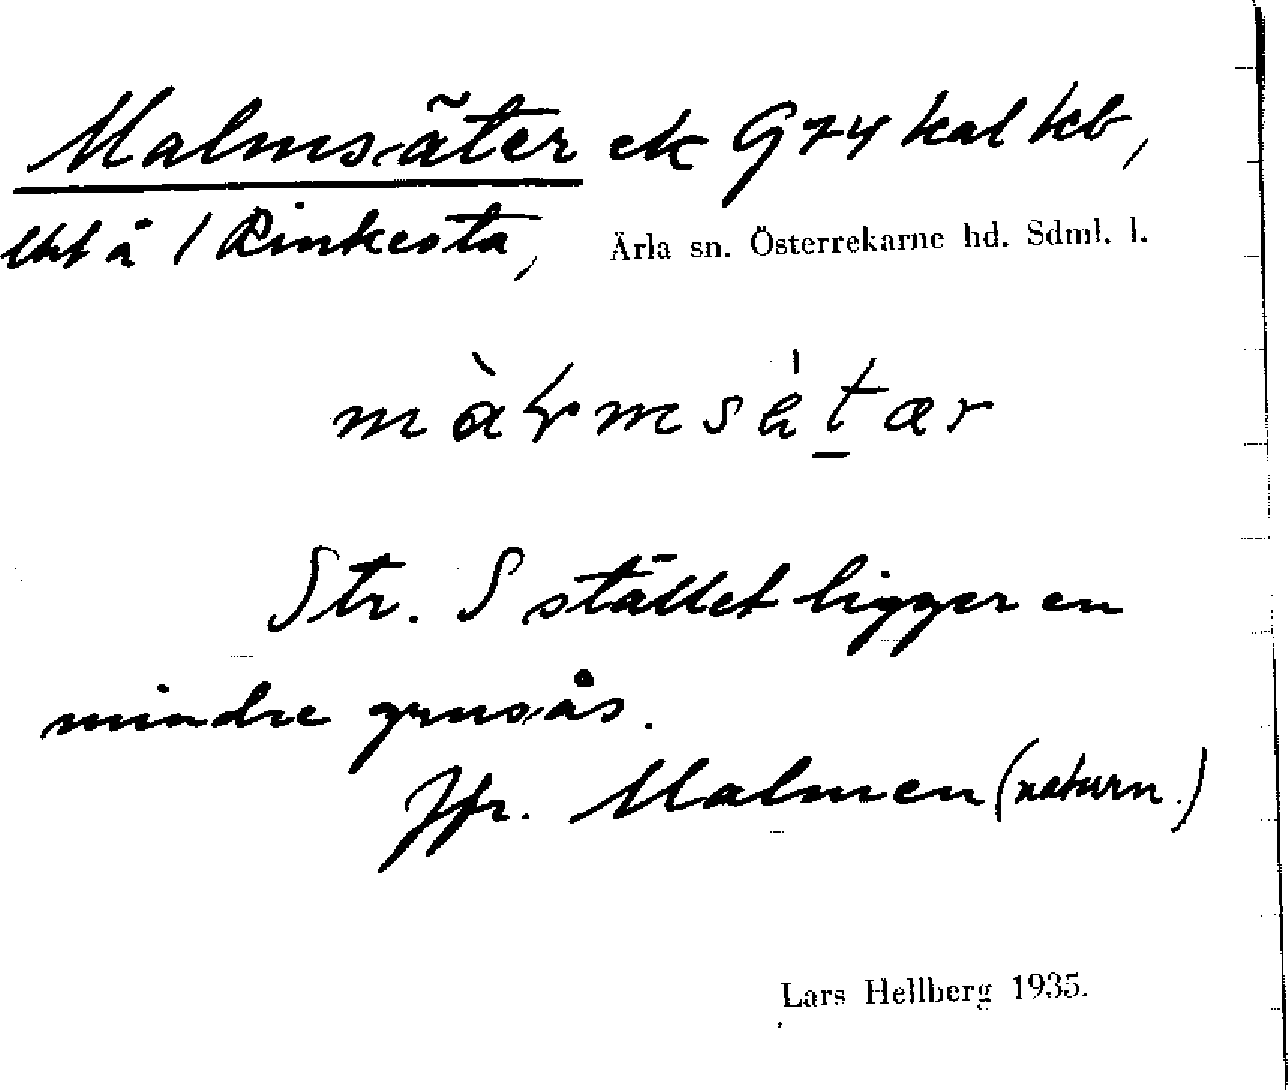 Malmsäter ek G74 kal kb,
lht å 1 Rinkesta, Ärla sn. Österrekarne hd. Sdml. l.
màɽmsätær
Str. S stället ligger en
mindre grusås.
Jfr. Malmen (naturn.)
Lars Hellberg 1935.